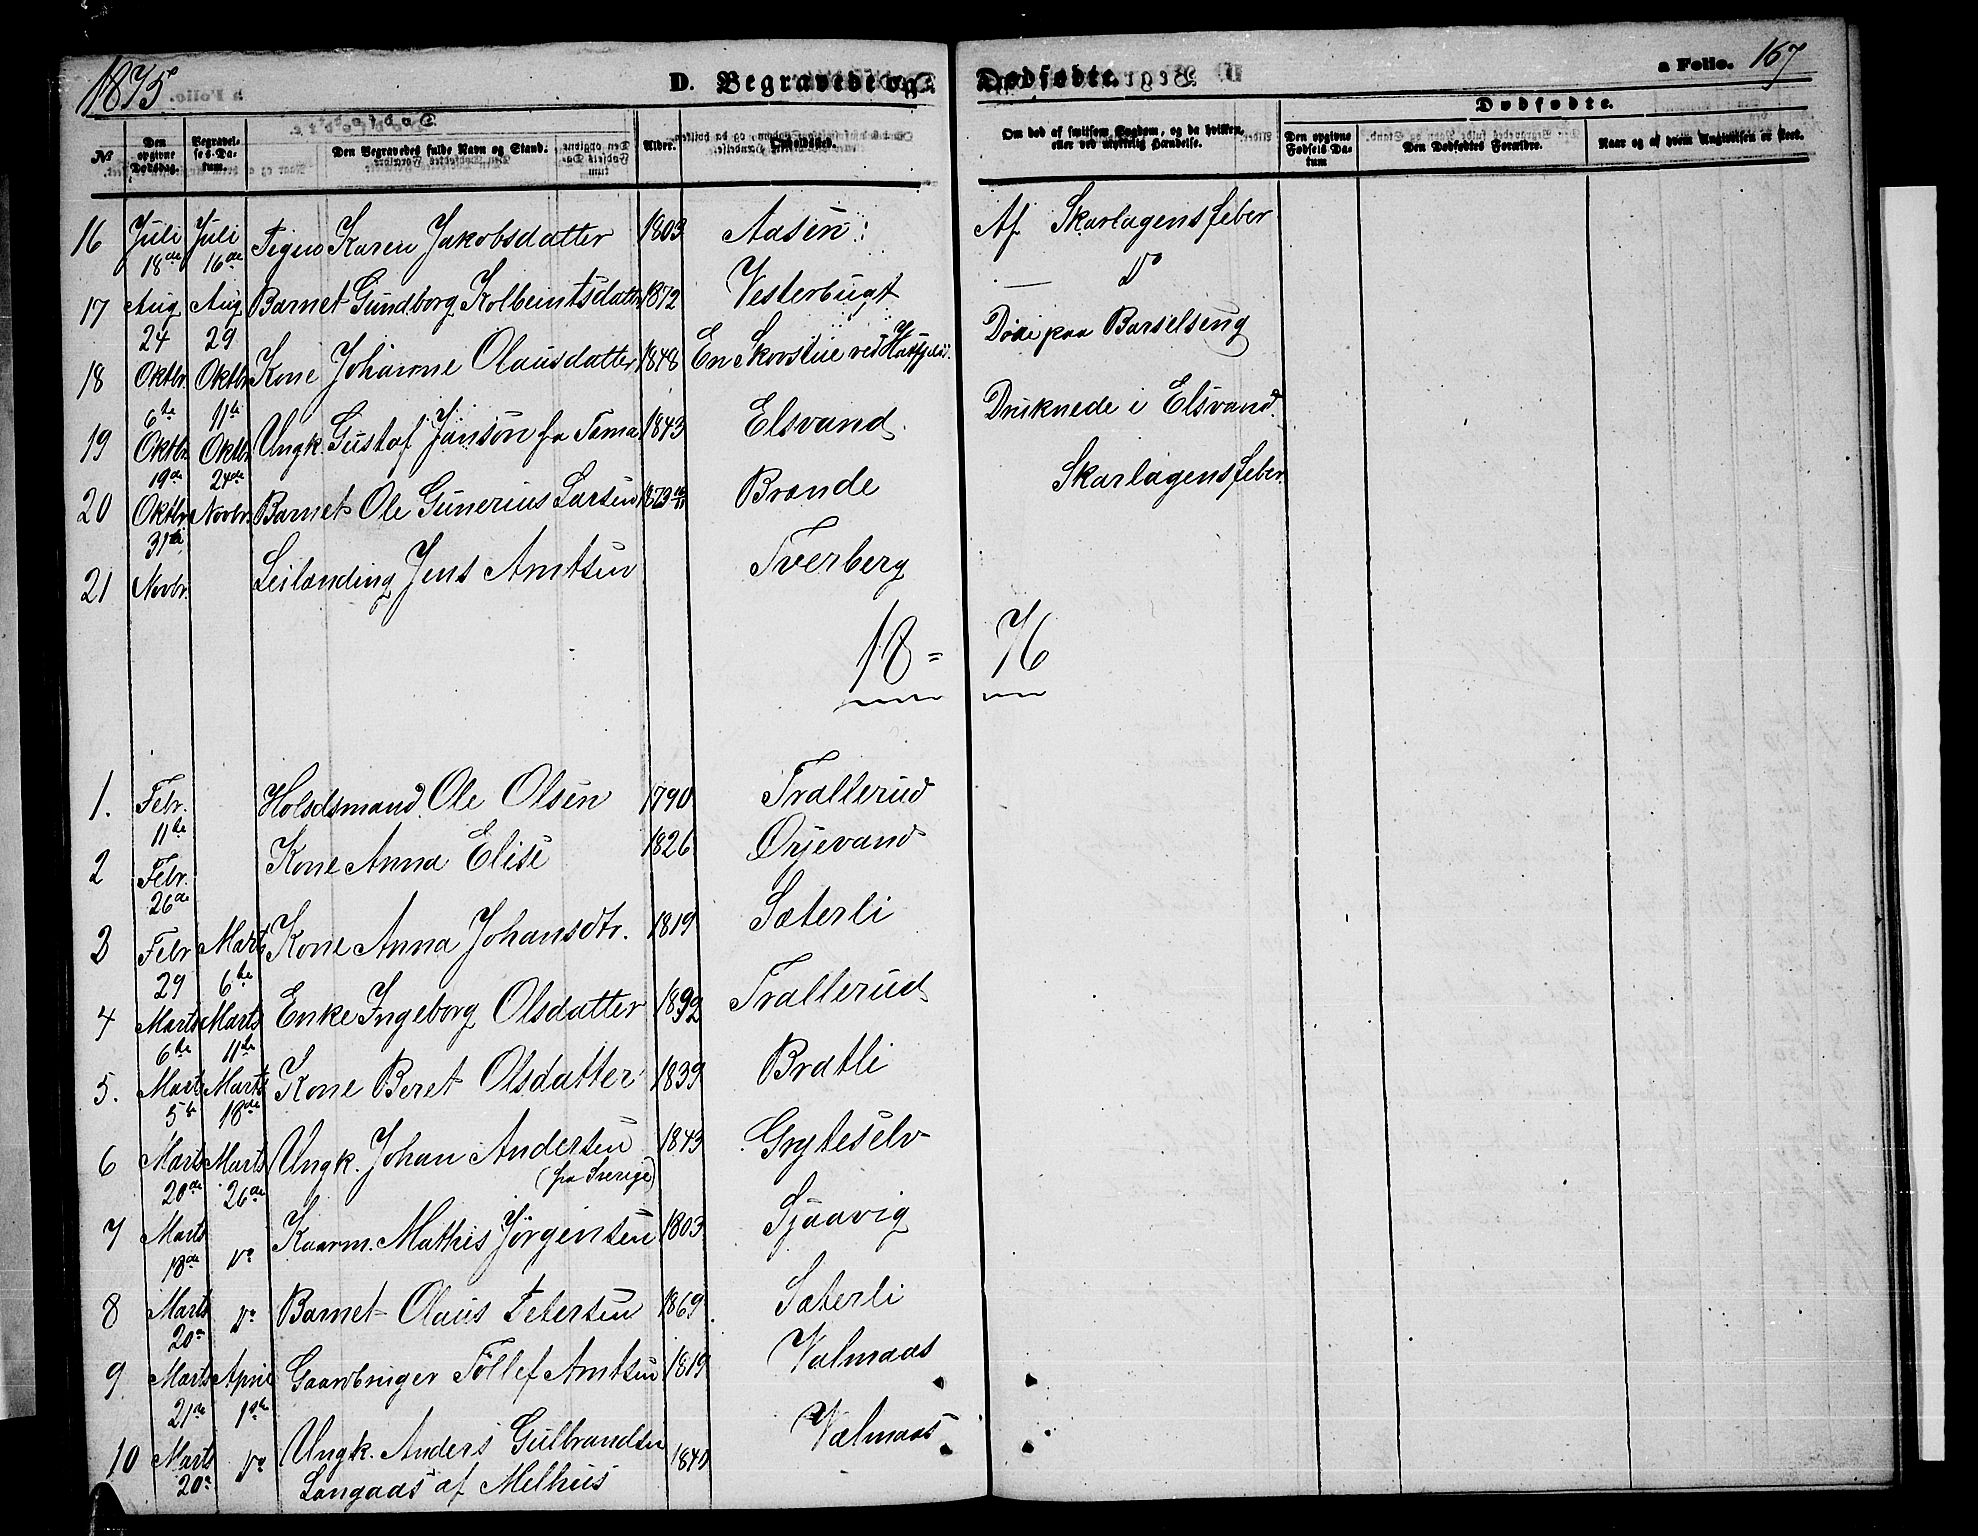 1875
D. Begravede og Dødfødte.
a Folio. 167
Dødfødte.
No
Den opgivne Dødsdag.
Begravelses-Datum.
Den Begravedes fulde Navn og Stand.
Alder.
Opholdssted.
Om død af smitsom Sygdom, og da hvilken, eller ved ulykkelig Hændelse.
Den opgivne Fødsels Datum
Den Dødfødtes Forældre.
Naar og af hvem Angivelsen er skeet.
16 Juli Juli Karen Jakobsdatter 1803 Aasen Af Skarlagensfeber
18de 16de
17 Aug Aug Barnet Gundborg Kolbeintsdatter 1872 Vesterbugt — Do
24 29
18 Oktbr. Oktbr. Kone Johanne Olausdatter 1848 En Skovstue ved Døde paa Barselseng
6te 11te
19 Oktbr. Oktbr. Ungk. Gustaf Jonson fra Tärna 1843 Elsvand Druknede i Elsvand.
19de 24de
20 Oktbr. Novbr. Barnet Ole Gunerius Larsen 1873 Brænde Skarlagensfeber
31te
21 Novbr. Leilænding Jens Arntsen Tverberg
18 = 76
1. Febr. Holdsmand Ole Olsen 1790 Trallerud
11te
2 Febr. Kone Anna Elise 1826 Ørjevand
26de
3 Febr Marts Kone Anna Johansdtr. 1819 Sæterli
29 6te
4 Marts Marts Enke Ingeborg Olsdatter Trallerud
6te 11te
5. Marts Marts Kone Beret Olsdatter 1839 Bratli
5te 18de
6 Marts Marts Ungk. Johan Andersen 1843 Gryteselv
20de 26de (fra Sverige)
7 Marts Do Kaarm. Mathis Jörgensen 1803 Sjaavig
18de
8 Marts Do Barnet Olaus Petersen 1869 Sæterli
20de
9. Marts April Gaardbruger Tollef Arntsen 1819 Valmaas
21de 1ste
10 Marts Do Ungk. Anders Gulbrandsen 1840 Valmaas
20de Langaas af Melhus